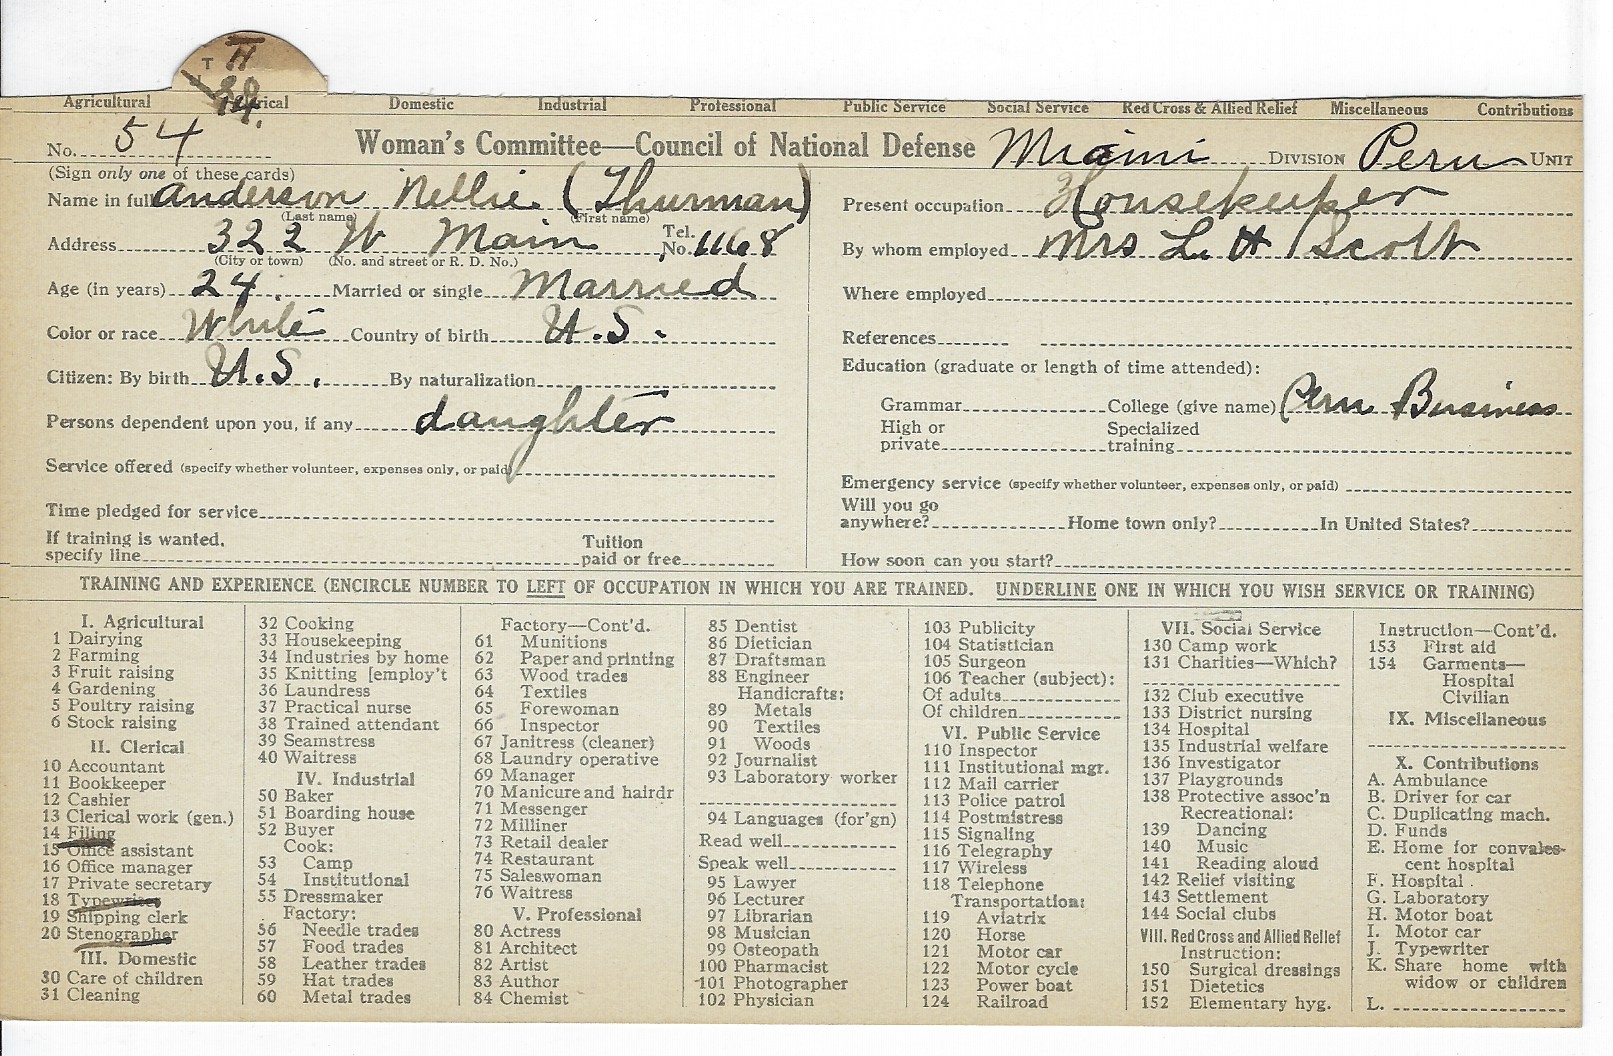 T H
Agricultural Domestic Industrial Professional Public Service Social Service Red Cross & Allied Relief Miscellaneous Contributions
No. 54 Woman's Committee—Council of National Defense Miami DIVISION Peru UNIT
(Sign only one of these cards)
Name in full Anderson Nellie (Thurman)
(Last name) (First name)
Address 322 W Main Tel. No. 1168
(City or town) (No. and street or R. D. No.)
Age (in years) 24. Married or single Married
Color or race White Country of birth U.S.
Citizen: By birth U.S. By naturalization
Persons dependent upon you, if any daughter
Service offered (specify whether volunteer, expenses only, or paid)
Time pledged for service
If training is wanted, Tuition
specify line paid or free
Present occupation Housekeeper
By whom employed Mrs L. H Scott
Where employed
References
Education (graduate or length of time attended):
Grammar College (give name) Peru Business
High or Specialized
private training
Emergency service (specify whether volunteer, expenses only, or paid)
Will you go
anywhere? Home town only? In United States?
How soon can you start?
TRAINING AND EXPERIENCE (ENCIRCLE NUMBER TO LEFT OF OCCUPATION IN WHICH YOU ARE TRAINED. UNDERLINE ONE IN WHICH YOU WISH SERVICE OR TRAINING)
I. Agricultural
1 Dairying
2 Farming
3 Fruit raising
4 Gardening
5 Poultry raising
6 Stock raising
II. Clerical
10 Accountant
11 Bookkeeper
12 Cashier
13 Clerical work (gen.)
14 Filing
15 Office assistant
16 Office manager
17 Private secretary
18 Typewriter
19 Shipping clerk
20 Stenographer
III. Domestic
30 Care of children
31 Cleaning
32 Cooking
33 Housekeeping
34 Industries by home
35 Knitting [employ't
36 Laundress
37 Practical nurse
38 Trained attendant
39 Seamstress
40 Waitress
IV. Industrial
50 Baker
51 Boarding house
52 Buyer
Cook:
53 Camp
54 Institutional
55 Dressmaker
Factory:
56 Needle trades
57 Food trades
58 Leather trades
59 Hat trades
60 Metal trades
Factory—Cont'd.
61 Munitions
62 Paper and printing
63 Wood trades
64 Textiles
65 Forewoman
66 Inspector
67 Janitress (cleaner)
68 Laundry operative
69 Manager
70 Manicure and hairdr
71 Messenger
72 Milliner
73 Retail dealer
74 Restaurant
75 Saleswoman
76 Waitress
V. Professional
80 Actress
81 Architect
82 Artist
83 Author
84 Chemist
85 Dentist
86 Dietician
87 Draftsman
88 Engineer
Handicrafts:
89 Metals
90 Textiles
91 Woods
92 Journalist
93 Laboratory worker
94 Languages (for'gn)
Read well
Speak well
95 Lawyer
96 Lecturer
97 Librarian
98 Musician
99 Osteopath
100 Pharmacist
101 Photographer
102 Physician
103 Publicity
104 Statistician
105 Surgeon
106 Teacher (subject):
Of adults
Of children
VI. Public Service
110 Inspector
111 Institutional mgr.
112 Mail carrier
113 Police patrol
114 Postmistress
115 Signaling
116 Telegraphy
117 Wireless
118 Telephone
Transportation:
119 Aviatrix
120 Horse
121 Motor car
122 Motor cycle
123 Power boat
124 Railroad
VII. Social Service
130 Camp work
131 Charities—Which?
132 Club executive
133 District nursing
134 Hospital
135 Industrial welfare
136 Investigator
137 Playgrounds
138 Protective assoc'n
Recreational:
139 Dancing
140 Music
141 Reading aloud
142 Relief visiting
143 Settlement
144 Social clubs
VIII. Red Cross and Allied Relief
Instruction:
150 Surgical dressings
151 Dietetics
152 Elementary hyg.
Instruction—Cont'd.
153 First aid
154 Garments—
Hospital
Civilian
IX. Miscellaneous
X. Contributions
A. Ambulance
B. Driver for car
C. Duplicating mach.
D. Funds
E. Home for convales-
cent hospital
F. Hospital
G. Laboratory
H. Motor boat
I. Motor car
J. Typewriter
K. Share home with
widow or children
L.